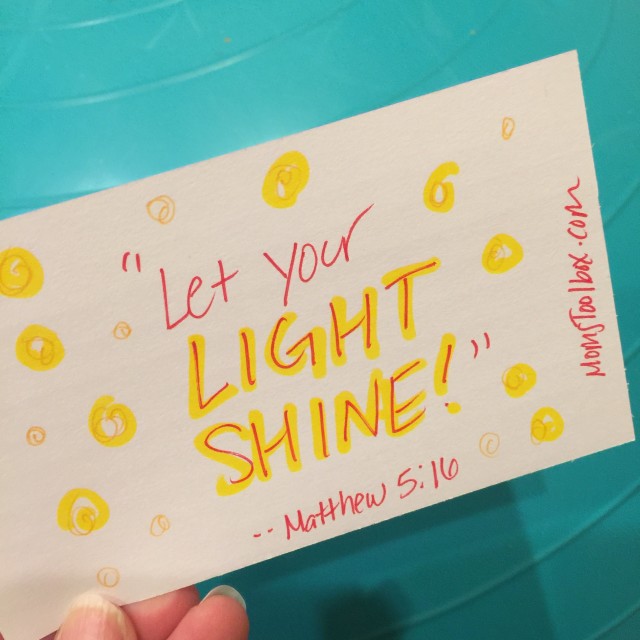 "Let your
LIGHT
SHINE!"
-- Matthew 5:16
MomsToolbox.com